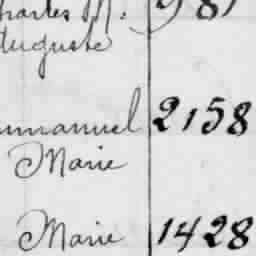 Charles M. 981
Auguste
mmanuel 2158
Marie
Marie 1428